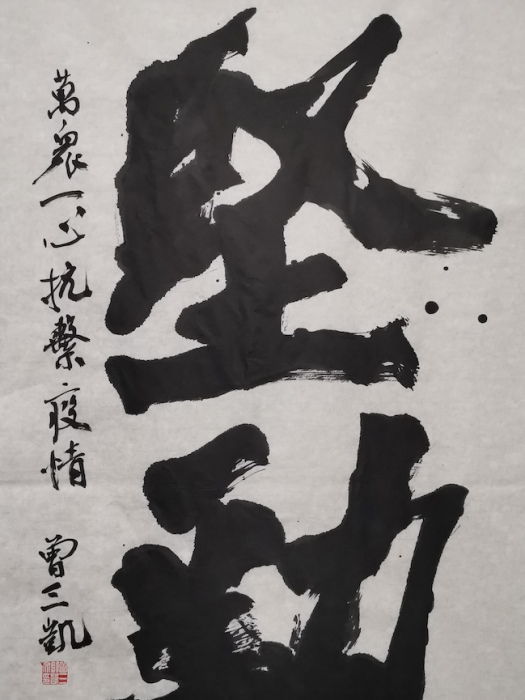 堅
萬衆一心抗擊疫情
曾三凱